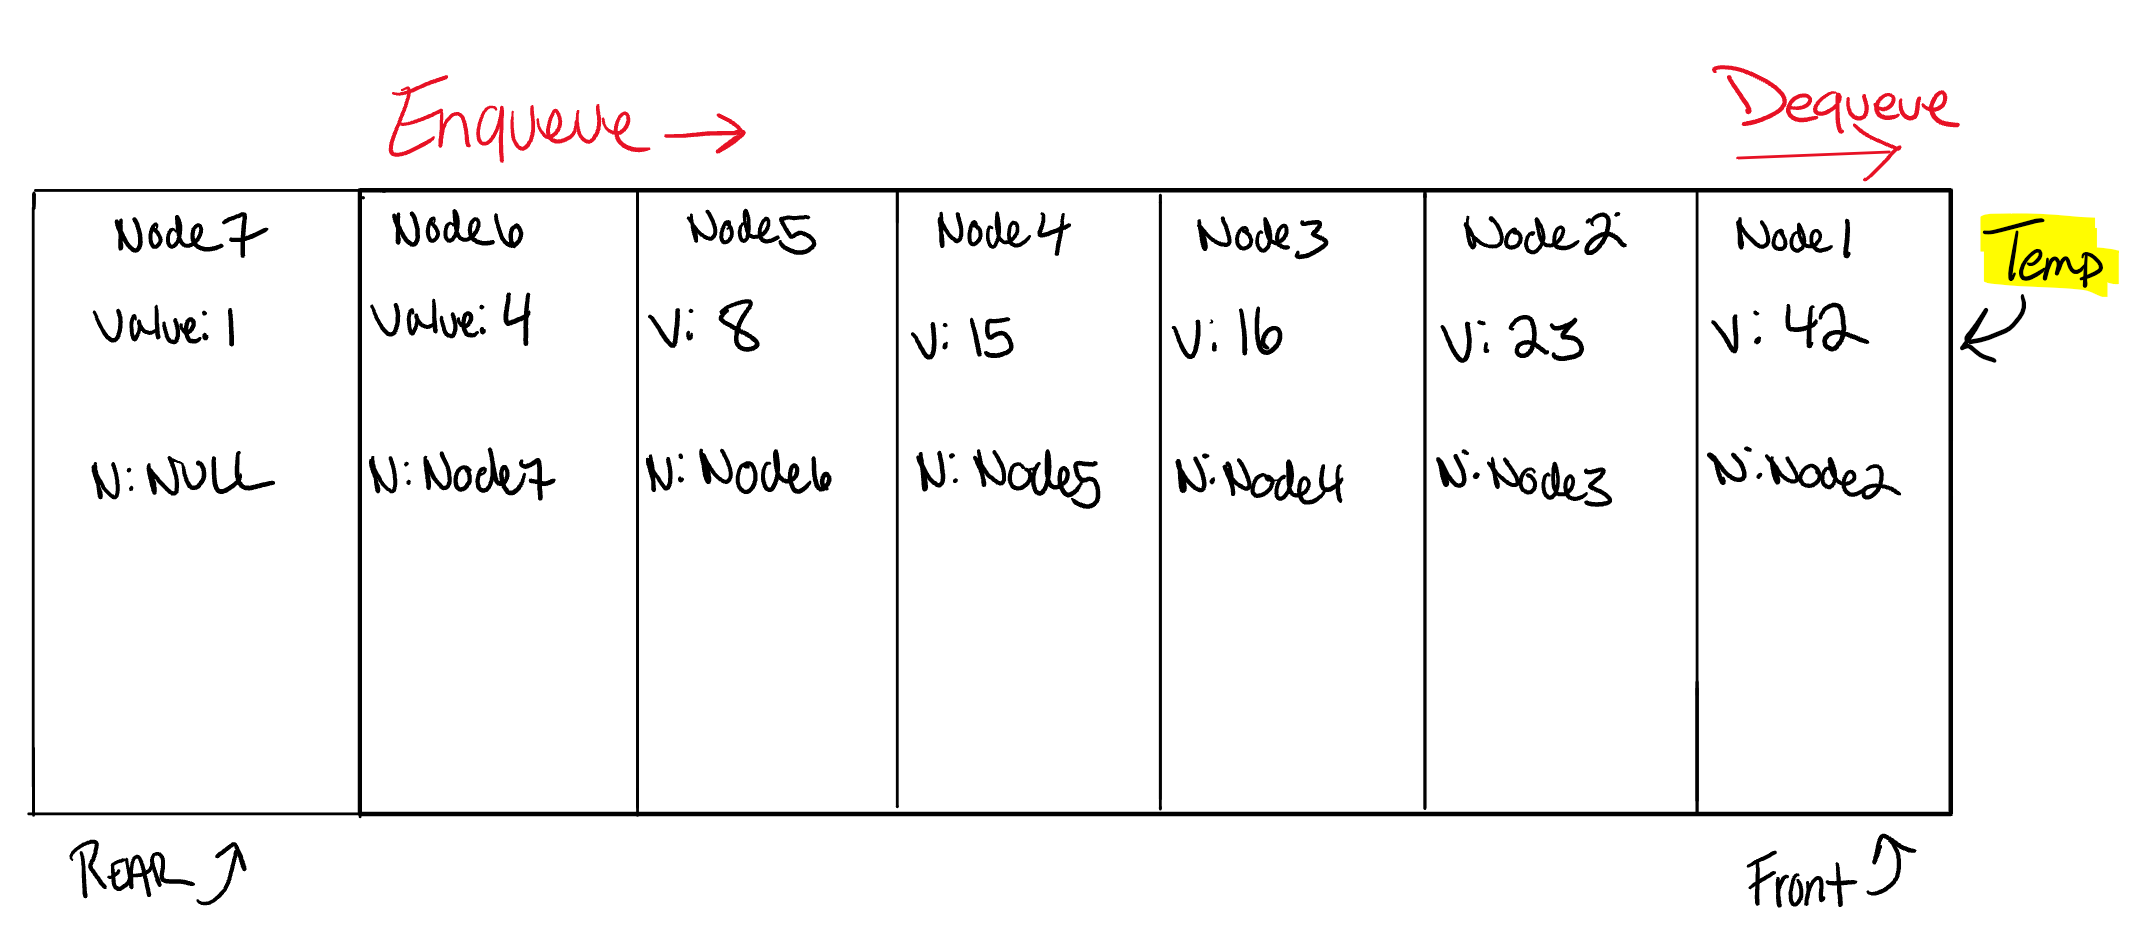 Enqueue →
Dequeue
→
Temp
Node7 Node6 Node5 Node4 Node3 Node2 Node1
Value:1 Value:4 V:8 V:15 V:16 V:23 V:42
N:NULL N:Node7 N:Node6 N:Node5 N:Node4 N:Node3 N:Node2
REAR
Front